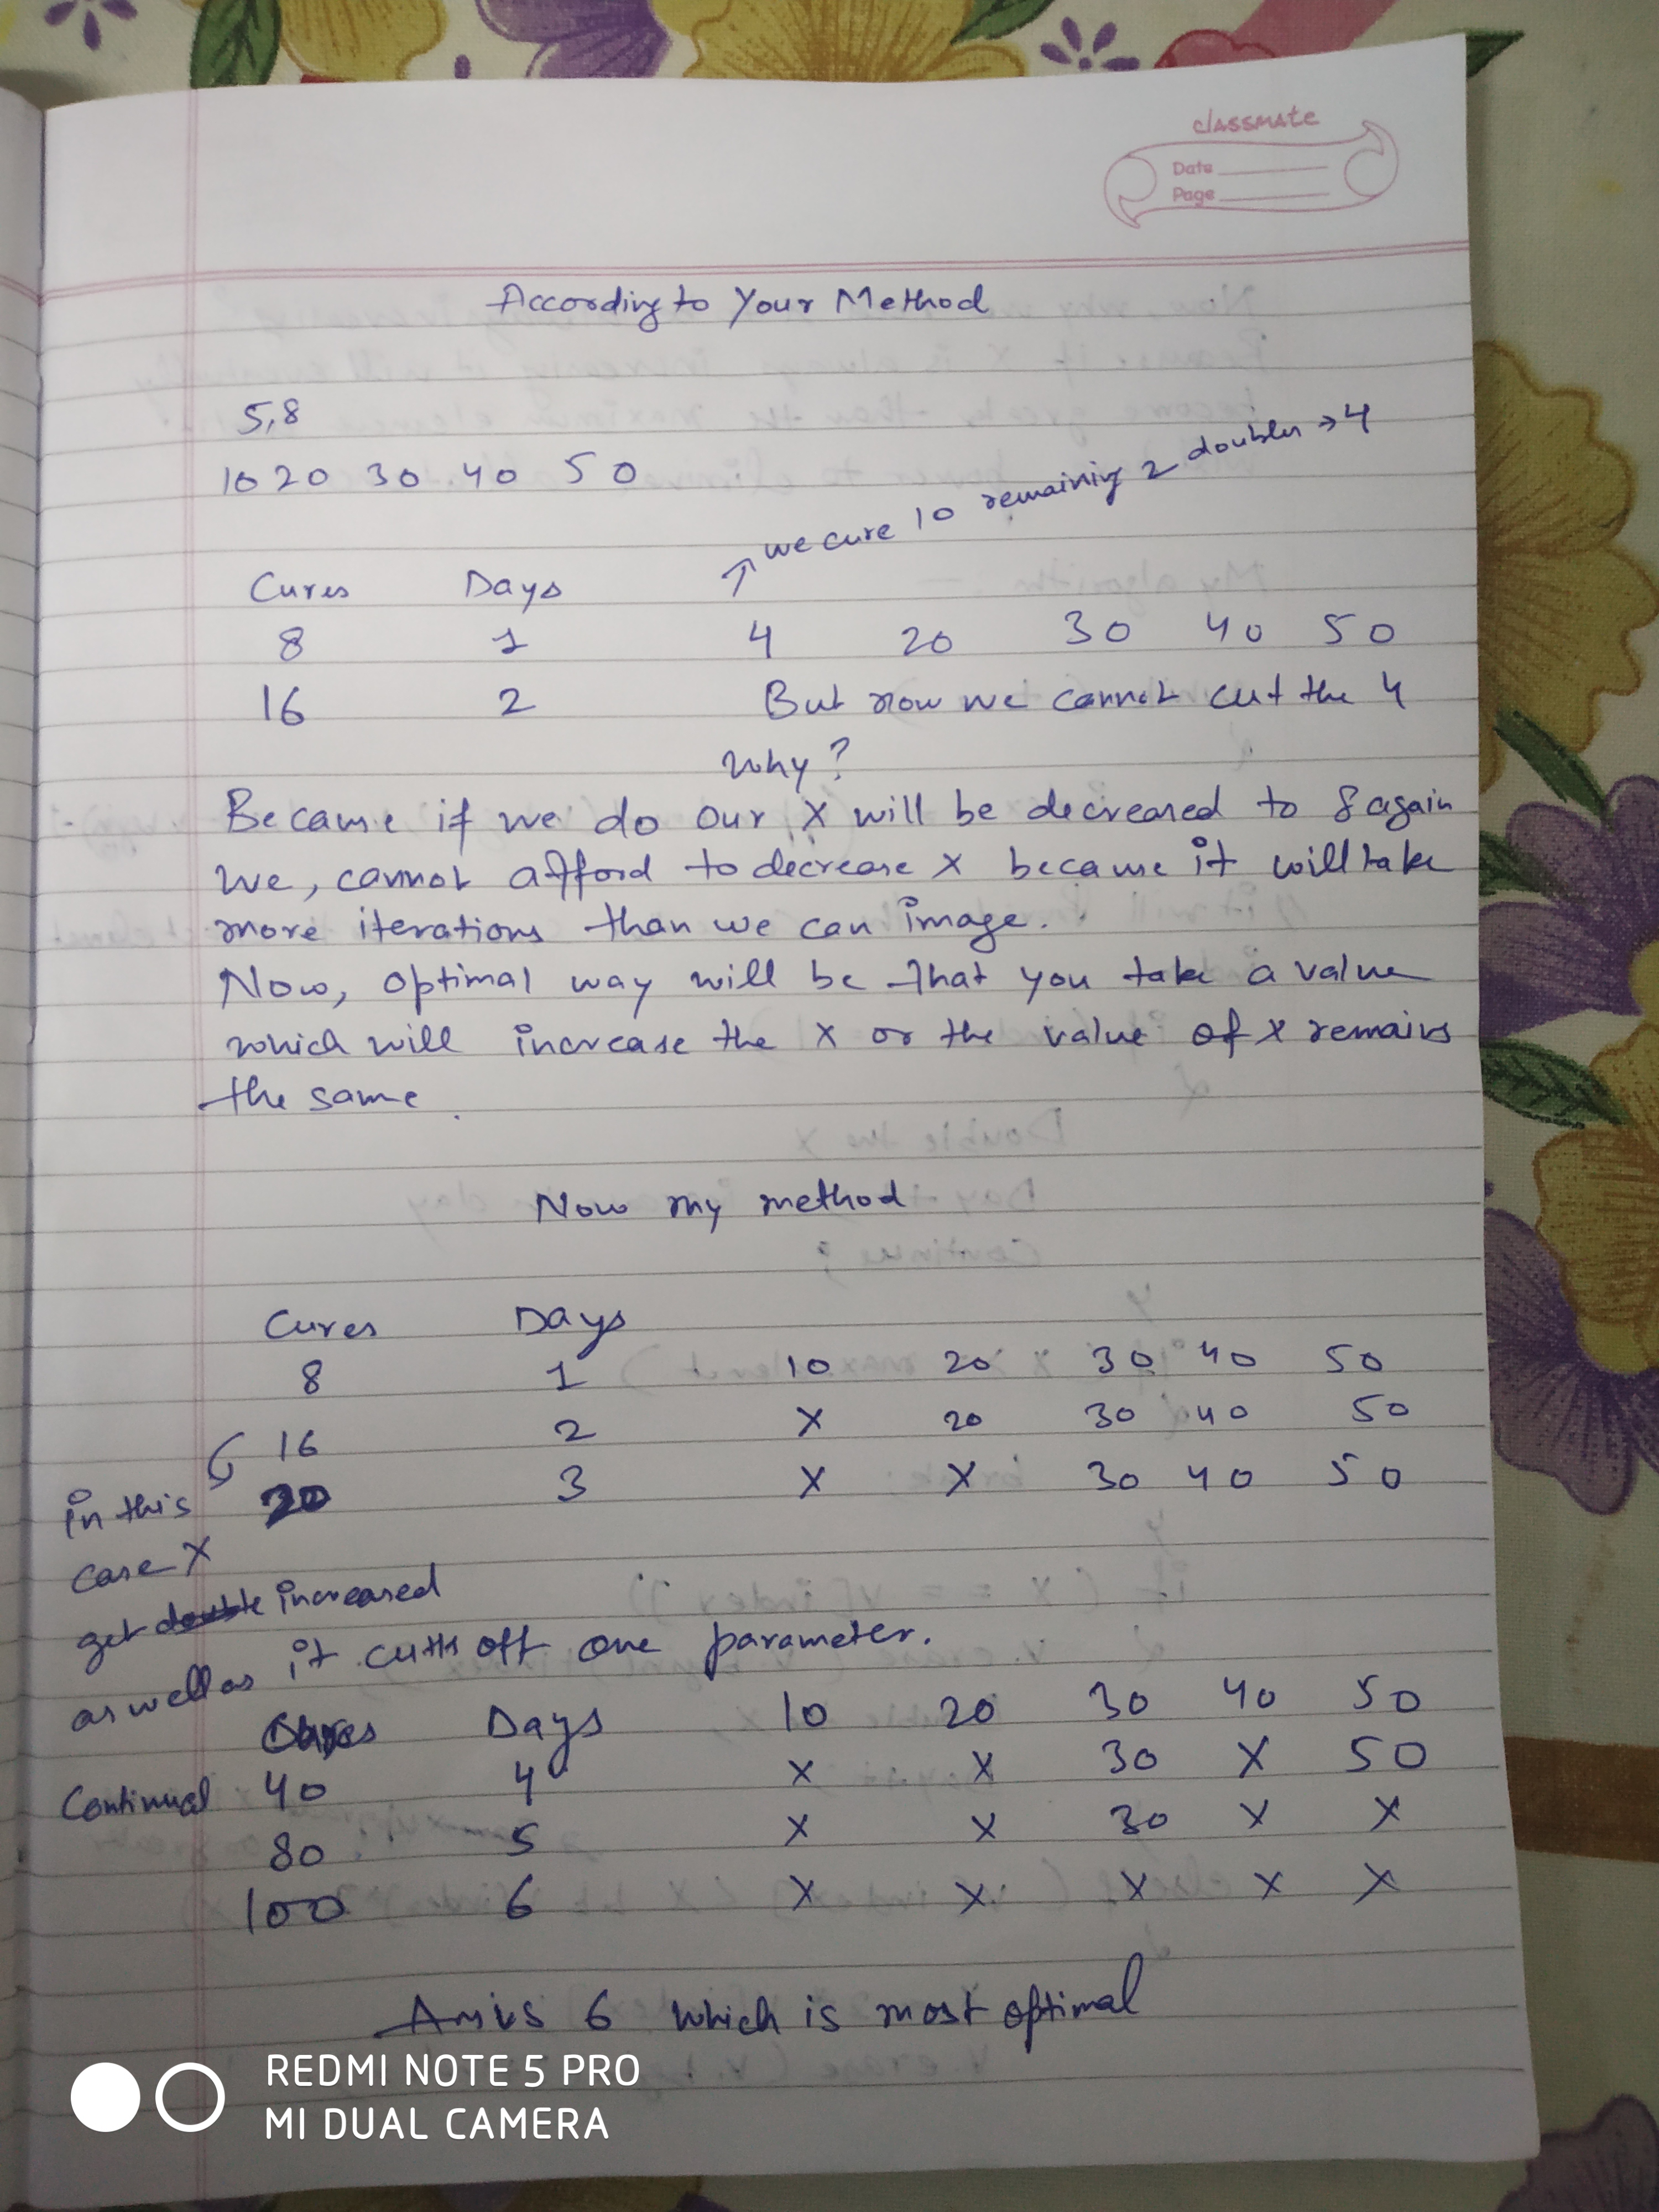 classmate
Date
Page
According to Your Method
5,8
10 20 30 40 50
we cure 10 remaining 2 doubles → 4
Cures Days
8 1 4 20 30 40 50
16 2 But now we cannot cut the 4
Why?
Because if we do our X will be decreased to 8 again
we, cannot afford to decrease X because it will take
more iterations than we can image.
Now, optimal way will be that you take a value
which will increase the X or the value of X remains
the same.
Now my method
Cures Days
8 1 10 20 30 40 50
16 2 X 20 30 40 50
20 3 X X 30 40 50
in this
case X
get double increased
as well as it cutts off one parameter.
Cures Days 10 20 30 40 50
Continual 40 4 X X 30 X 50
80 5 X X 30 X X
100 6 X X X X X
Ans is 6 which is most optimal
REDMI NOTE 5 PRO
MI DUAL CAMERA